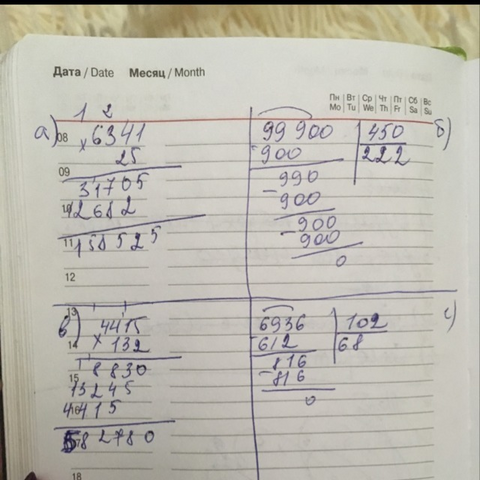 Дата / Date Месяц / Month
Пн Вт Ср Чт Пт Сб Вс
Mo Tu We Th Fr Sa Su
1 2
а) 08 × 6341
25
09
31705
10 12682
11 158525
12
99900 450 б)
-900 222
990
-900
900
-900
0
13
в) 4415
14 × 132
8830
15
13245
4415
582780
18
6936 102 с)
-612 68
816
-816
0